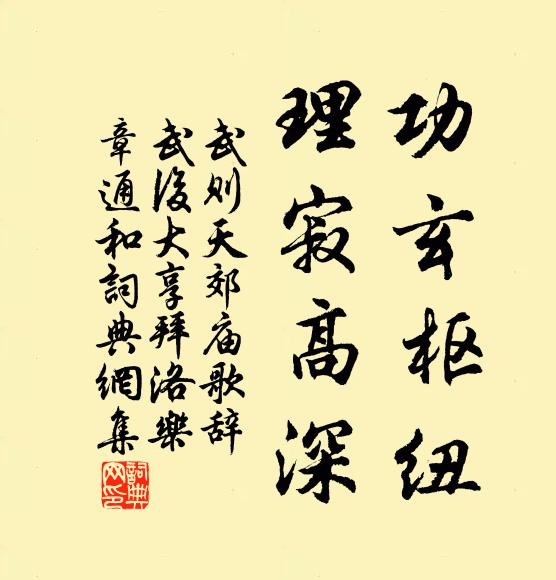 功玄枢纽
理寂高深
武则天郊庙歌辞
武後大享拜洛樂
章通和詞典網集
詞典网印